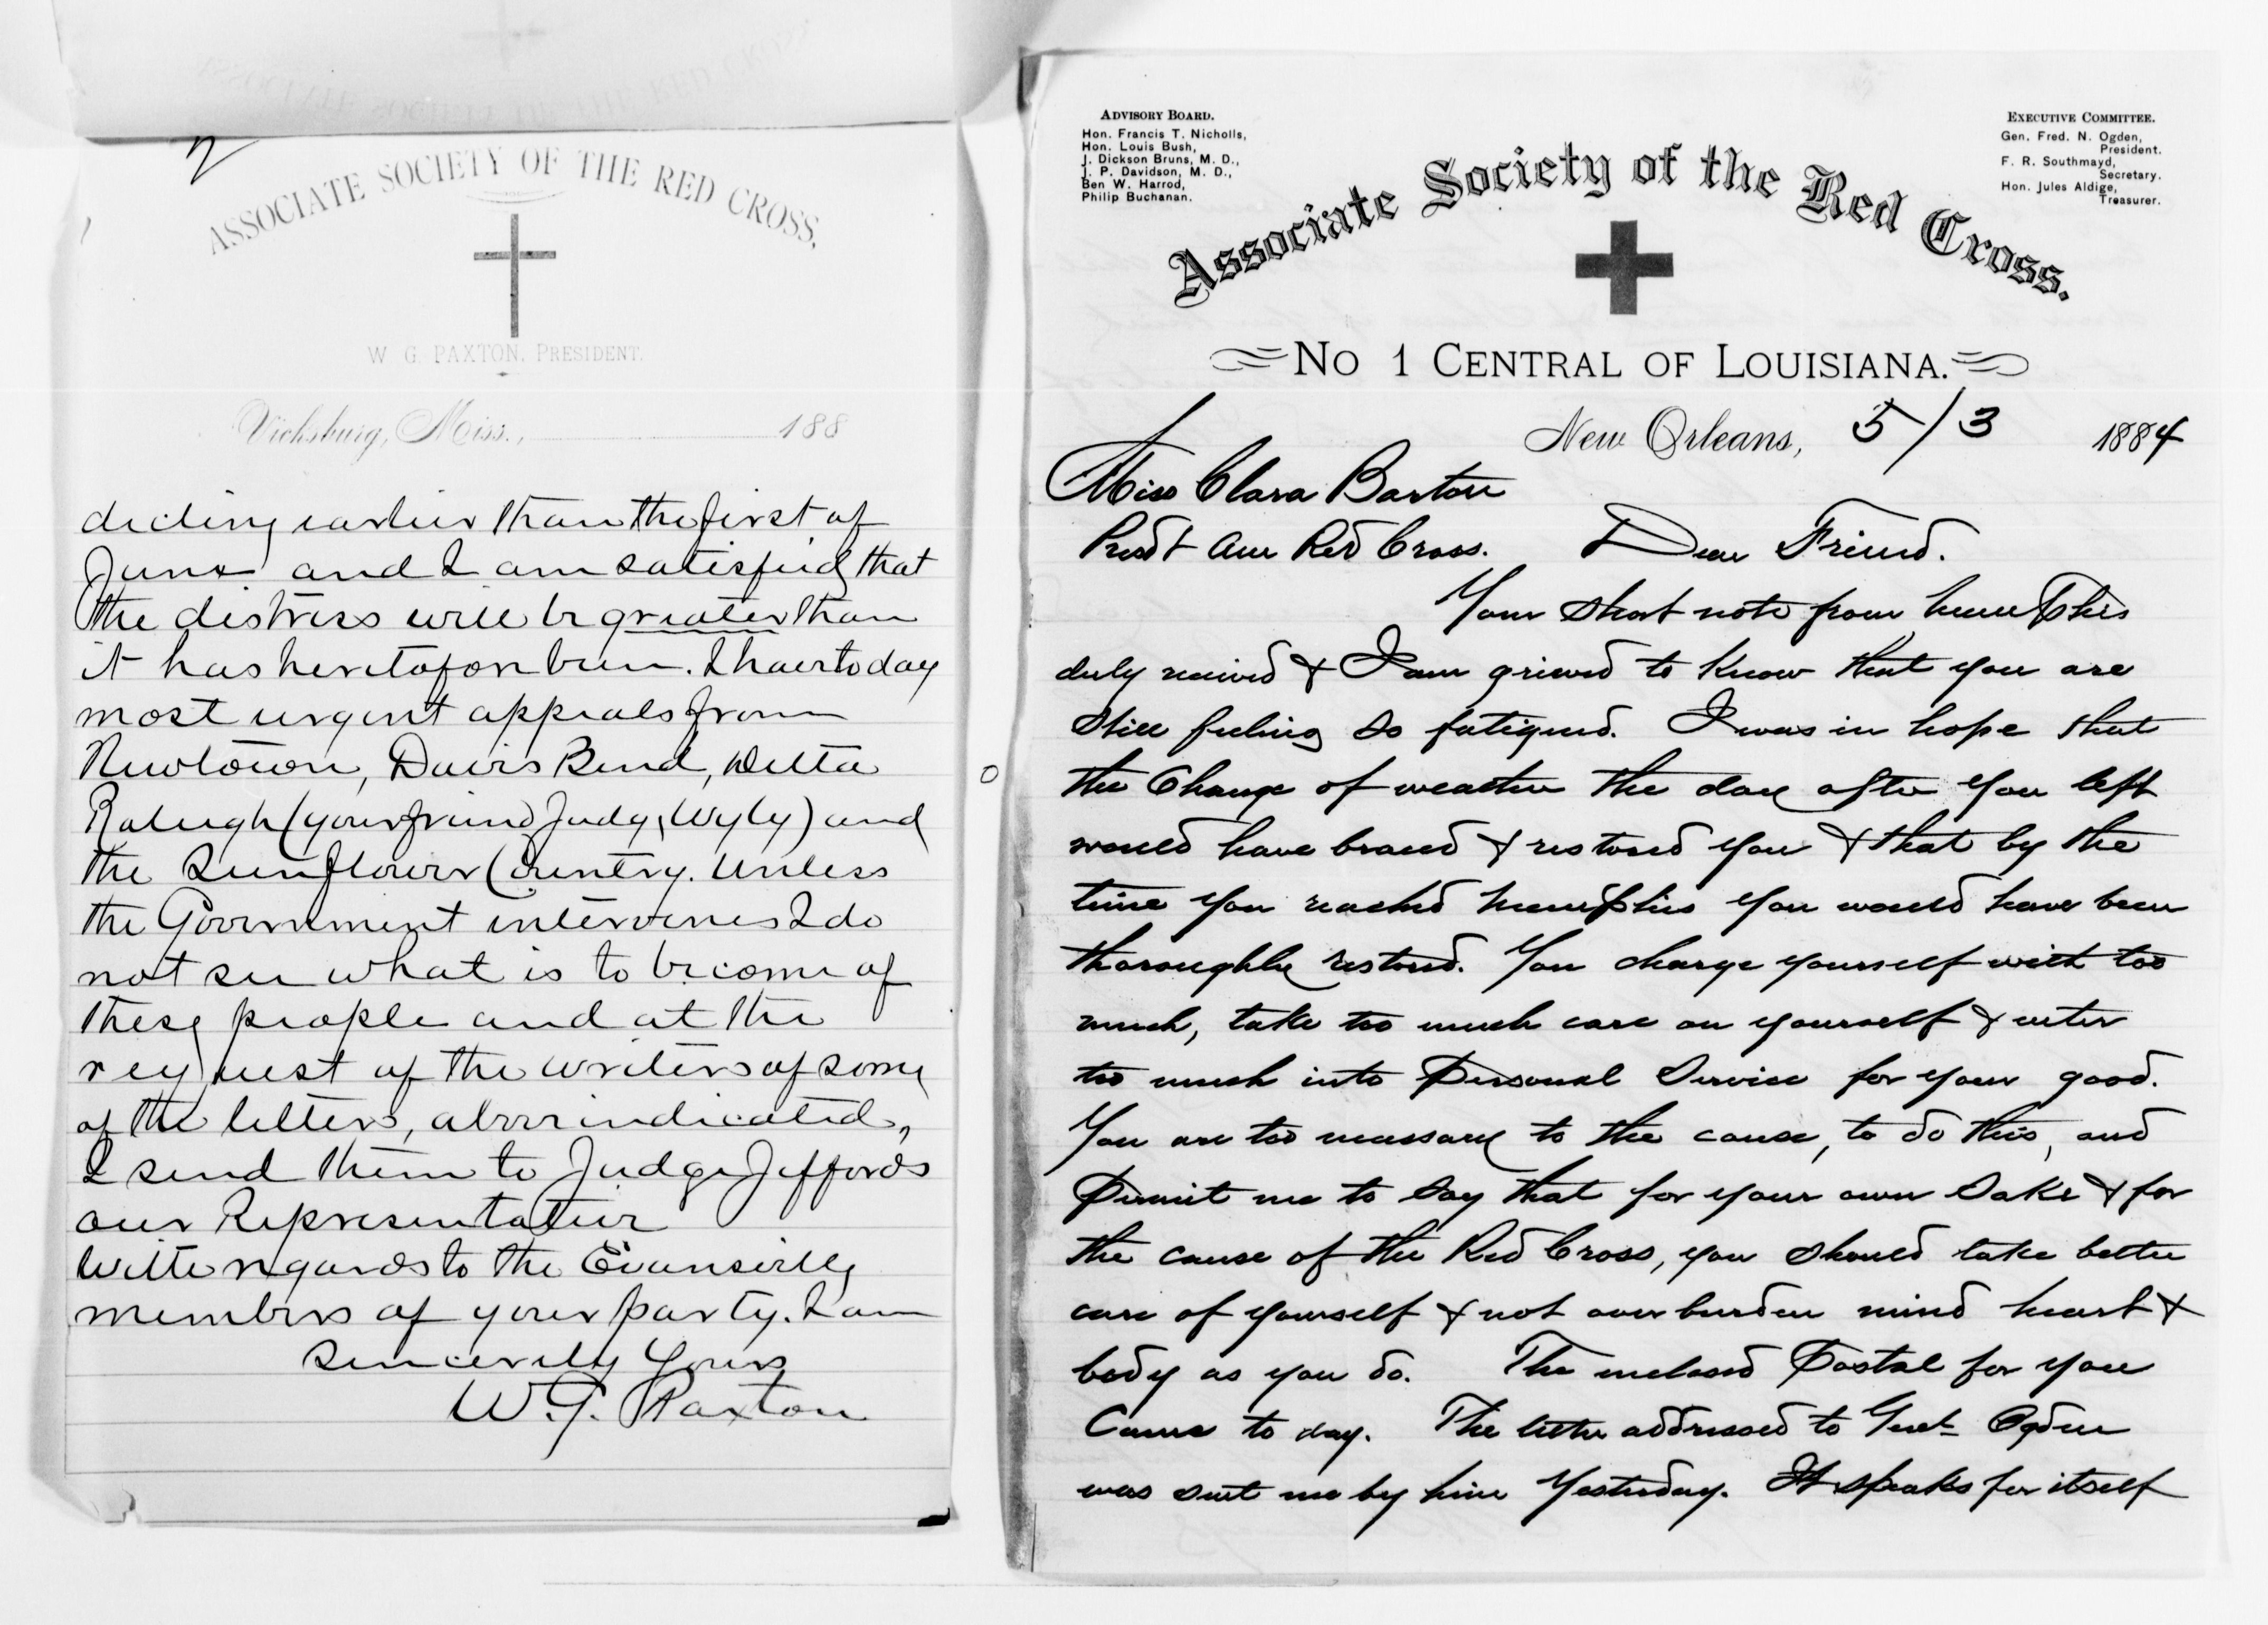 2
ASSOCIATE SOCIETY OF THE RED CROSS,
W. G. PAXTON, PRESIDENT.
Vicksburg, Miss., 188
ducting earlier than the first of
June and I am satisfied that
the distress will be greater than
it has heretofore been. I have to day
most urgent appeals from
Newtown, Davis Bend, Delta
Raleigh (your friend Judge Wyly) and
the Sunflower Country. Unless
the Government intervenes I do
not see what is to become of
these people and at the
request of the writers of some
of the letters, above indicated,
I send them to Judge Jeffords
our Representative
With regards to the Evansville
members of your party. I am
Sincerely Yours
W. G. Paxton
ADVISORY BOARD.
Hon. Francis T. Nicholls,
Hon. Louis Bush,
J. Dickson Bruns, M. D.,
J. P. Davidson, M. D.,
Ben W. Harrod,
Philip Buchanan.
EXECUTIVE COMMITTEE.
Gen. Fred. N. Ogden,
President.
F. R. Southmayd,
Secretary.
Hon. Jules Aldige,
Treasurer.
Associate Society of the Red Cross.
No 1 CENTRAL OF LOUISIANA.
New Orleans, 5/3 1884
Miss Clara Barton
Presdt Am Red Cross. Dear Friend.
Your short note from Memphis
duly recived & I am grieved to know that you are
still feeling so fatigued. I was in hope that
the Change of weather the day after you left
would have braced & restored you & that by the
time you reached Memphis you would have been
thoroughly restored. You charge yourself with too
much, take too much care on yourself & enter
too much into Personal Service for your good.
You are too necessary to the cause, to do this, and
Permit me to say that for your own Sake & for
the cause of the Red Cross, you should take better
care of yourself & not over burden mind heart &
body as you do. The enclosed Postal for you
Came to day. The letter addressed to Genl Ogden
was sent me by him Yesterday. It speaks for itself